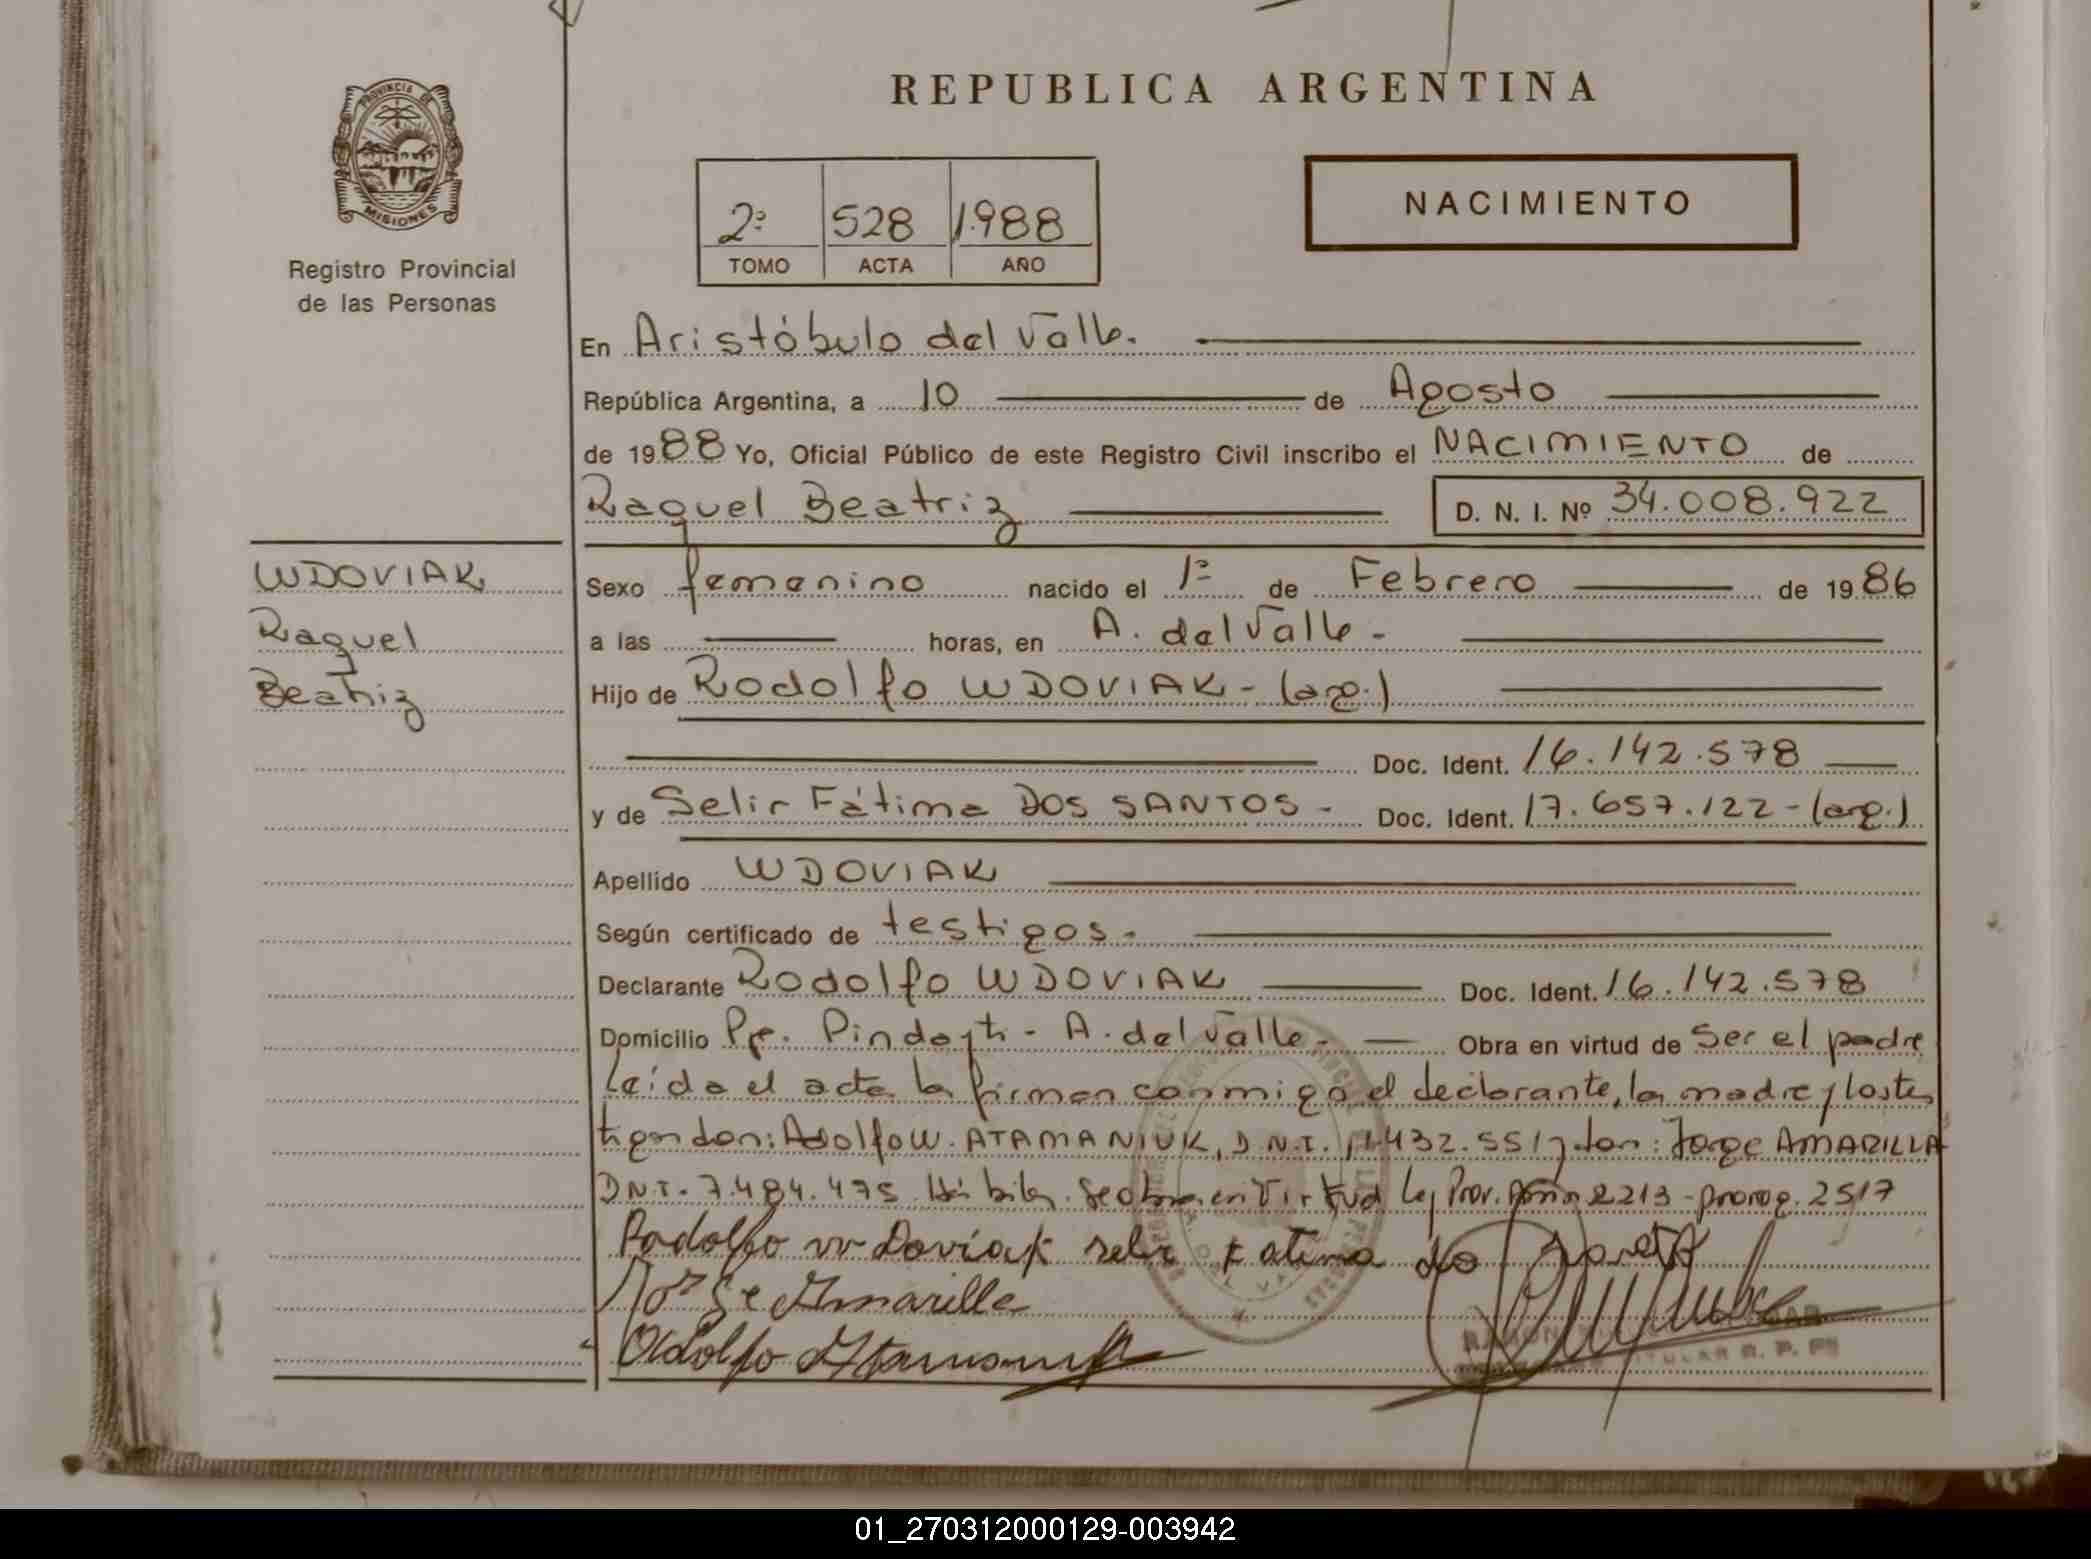 REPUBLICA ARGENTINA
PROVINCIA DE
MISIONES
Registro Provincial
de las Personas
2º 528 1.988
TOMO ACTA AÑO
NACIMIENTO
En Aristóbulo del Valle.
República Argentina, a 10 de Agosto
de 1988 Yo, Oficial Público de este Registro Civil inscribo el NACIMIENTO de
Raquel Beatriz D. N. I. Nº 34.008.922
WDOVIAK
Raquel
Beatriz
Sexo femenino nacido el 1º de Febrero de 1986
a las horas, en A. del Valle -
Hijo de Rodolfo WDOVIAK - (arg.)
Doc. Ident. 16.142.578
y de Selir Fátima DOS SANTOS - Doc. Ident. 17.657.122 - (arg.)
Apellido WDOVIAK
Según certificado de testigos.
Declarante Rodolfo WDOVIAK Doc. Ident. 16.142.578
Domicilio Pje. - A. del Valle - Obra en virtud de Ser el padre
Leída el acta la firman conmigo el declarante, la madre y los tes
tigos don: Adolfo W. ATAMANIUK, D.N.I. y don: Jorge AMARILLA
D.N.I. 7.484.475 Hábiles. en Virtud Ley Prov. 2213 - prorog. 2517
Rodolfo w Doviak selir Fatima do
Jorge Amarilla
Adolfo Atamaniuk
TITULAR R. P. P.
01_270312000129-003942